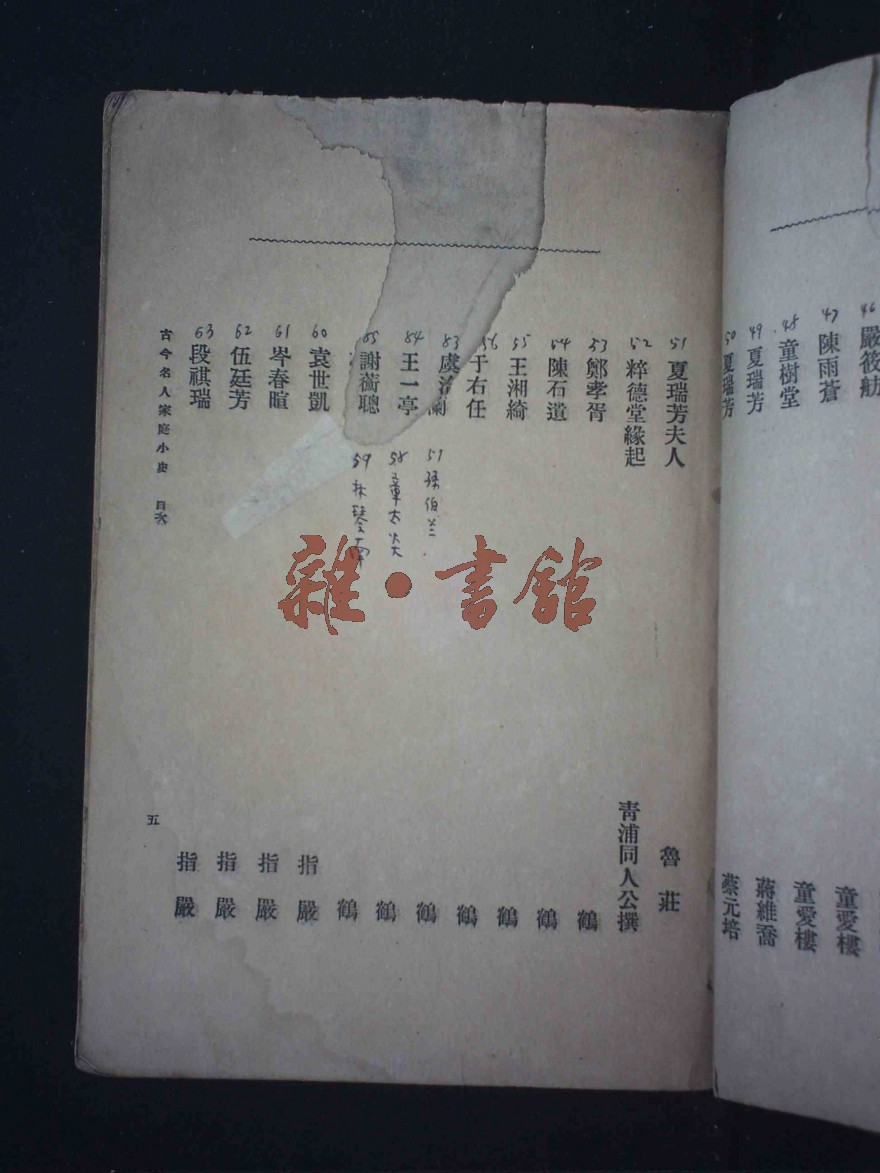 46 嚴筱舫
47 陳雨蒼
童愛樓
48 童樹堂
童愛樓
49 夏瑞芳
蔣維喬
50 夏瑞芳
蔡元培
51 夏瑞芳夫人
魯莊
52 粹德堂緣起
青浦同人公撰
53 鄭孝胥
鶴
54 陳石遺
鶴
55 王湘綺
鶴
56 于右任
鶴
83 虞洽蘭
57 孫伯兰
鶴
84 王一亭
58 章太炎
鶴
85 謝蘅聰
59 林琴南
鶴
60 袁世凱
指嚴
61 岑春暄
指嚴
62 伍廷芳
指嚴
63 段祺瑞
指嚴
古今名人家庭小史 目次
五
雜·書館